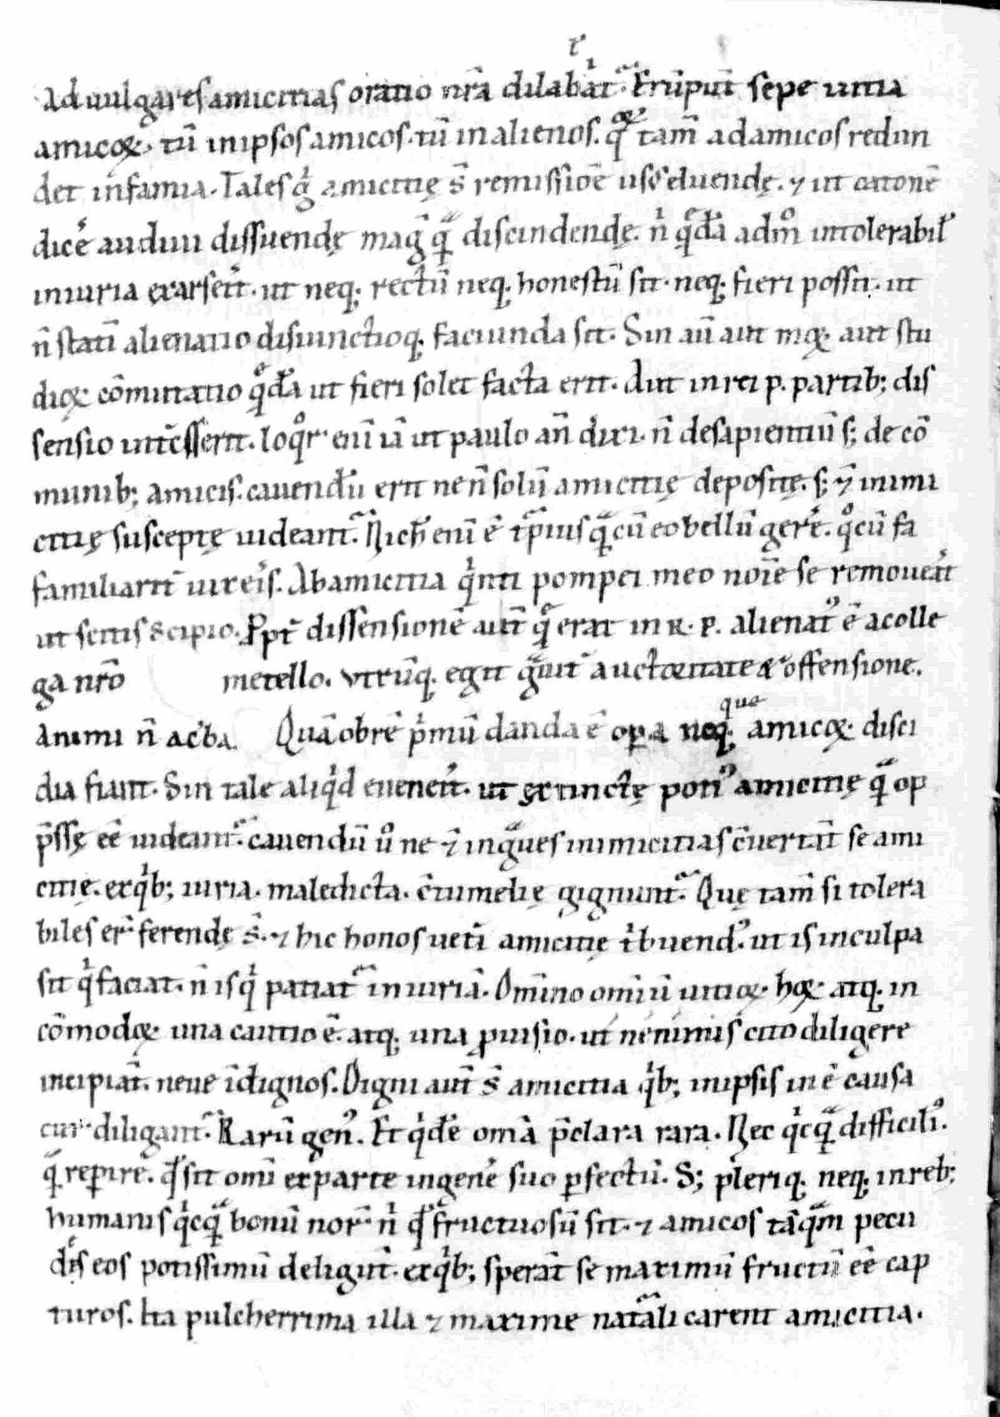 t᷎
Ad uulgares amicitias oratio nr̄a dilabat᷑. Erūpūt sepe uitia
amicoꝝ. tū in ipsos amicos. tū in alienos. qͦꝝ tam̄ ad amicos redun
det infamia. Tales gͥ amicitię s̄ remissiōe usꝰ eluendę. ⁊ ut catonē
dicē audiui dissuendę mag̅ qͣ̄ discindendę. nͥ qͣ̄dā admͦ intolerabil̕
iniuria exarserit. ut neq; rectū neq; honestū sit. neq; fieri possit. ut
n̄ statī alienatio disiunctioq; faciunda sit. Sin aū aut mꝝ aut stu
dioꝝ cōmutatio qͦdā ut fieri solet facta erit. Aut in rei p. partib; dis
sensio int̄cesserit. loqͦr enī iā ut paulo an̄ dixi. n̄ de sapientiū s; de cō
munib; amicis. cauendū erit ne n̄ solū amicitię deposite. s; ⁊̄ inimi
citię susceptę uideant᷑. Nich̄ enī ē t̕pius qͣ̄ cū eo bellū gerē. qͦcū fa
familiarit̄ uixeis. Ab amicitia qͥnti pompei meo noīe se remouerat
ut scitis scipio. Ppt̄ dissensionē aut̄ qͤ erat in R. P. alienatꝰ ē a colle
ga nr̄o metello. vtrūq; egit gͣuit̄ auctoritate & offensione.
Animi n̄ ac̕ba. Quā obrē pͥmū danda ē oꝑa neq; amicoꝝ disci
que
dia fiant. Sin tale aliqͥd euenerit. ut extinctę potiꝰ amicitię qͣ̄ op
p̄ssę eē uideant᷑. cauendū uͦ ne ⁊̄ in gͣues inimicitias c̄uertāt se ami
citię. ex qͥb; iuria. maledicta. c̄tumelię gignunt᷑. Quę tam̄ si tolera
biles er̄ ferendę s̄. ⁊ hic honos ueti amicitię tͥbuendꝰ. ut is in culpa
sit qͥ faciat. n̄ is qͥ patiat᷑ iniuriā. Om̄ino omīū uitioꝝ hoꝝ atq; in
cōmodoꝝ una cautio ē. atq; una ꝓuisio. ut ne nimis cito diligere
incipiāt. neue īdignos. Digni aut̄ s̄ amicitia qͥb; in ipsis inē causa
cur diligant᷑. Rarū genꝰ. Et qͥdē om̄ia p̄clara rara. Nec qͥcqͣ̄ difficiliꝰ.
qͣ̄ reꝑire. qͩ sit omī ex parte in genē suo ꝑfectū. S; pleriq; neq; in reb;
humanis qͥcqͣ̄ bonū nor̄ nͥ qͩ fructuosū sit. ⁊ amicos tāqͣ̄m pecu
des eos potissimū deligūt. ex qͥb; sperāt se maximū fructū eē cap
turos. Ita pulcherrima illa ⁊ maxime natͣali carent amicitia.